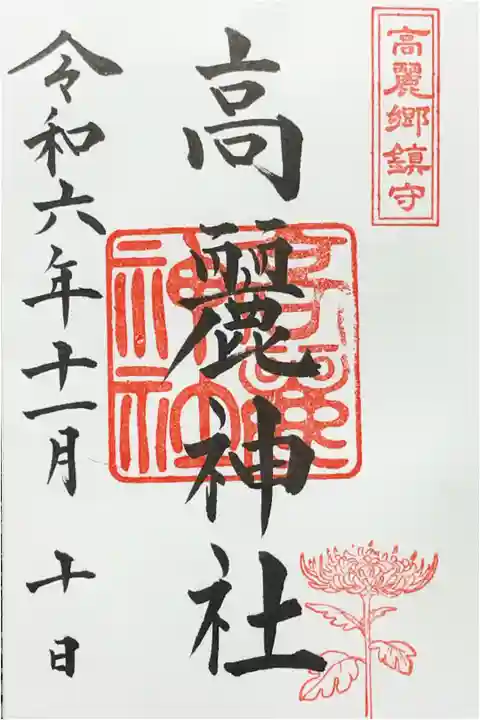 高麗郷鎮守
高麗神社
令和六年十一月十日
高麗神社